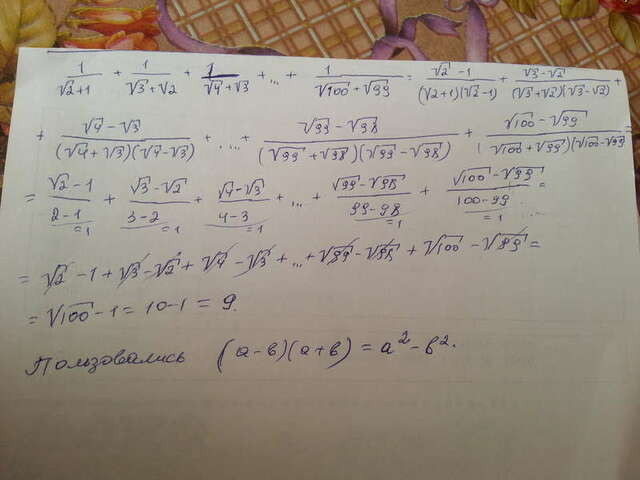 1/(√2+1) + 1/(√3+√2) + 1/(√4+√3) + ... + 1/(√100+√99) = (√2-1)/((√2+1)(√2-1)) + (√3-√2)/((√3+√2)(√3-√2)) +
+ (√4-√3)/((√4+√3)(√4-√3)) + ... + (√99-√98)/((√99+√98)(√99-√98)) + (√100-√99)/((√100+√99)(√100-√99)) =
= (√2-1)/(2-1) + (√3-√2)/(3-2) + (√4-√3)/(4-3) + ... + (√99-√98)/(99-98) + (√100-√99)/(100-99) =
=1 =1 =1 =1 =1
= √2 - 1 + √3 - √2 + √4 - √3 + ... + √99 - √98 + √100 - √99 =
= √100 - 1 = 10 - 1 = 9.
Пользовались (а-в)(а+в) = а² - в².